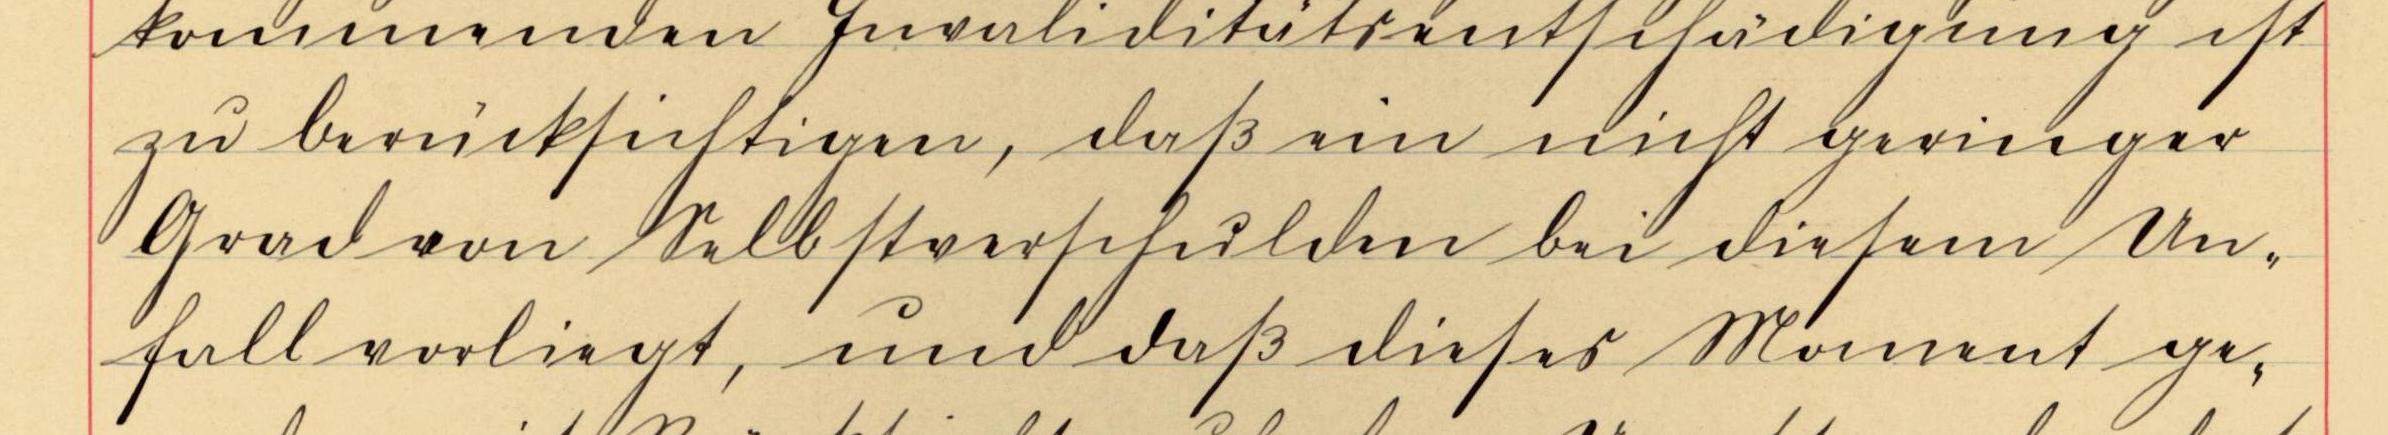 kommenden Invaliditätsentschädigung ist
zu berücksichtigen, daß ein nicht geringer
Grad von Selbstverschulden bei diesem Un„
fall vorliegt, und daß dieses Moment ge„